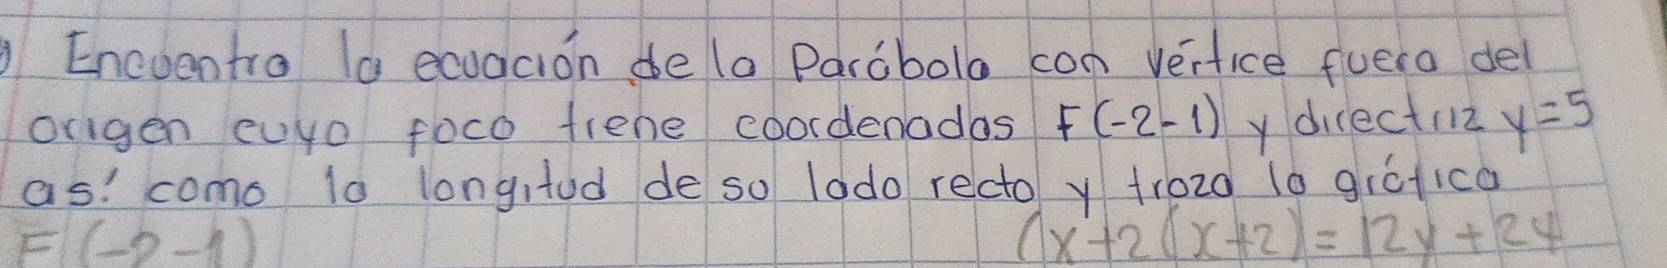 Encuentra la ecuación de la Parábola con vértice fuera del
origen cuyo foco tiene coordenadas F(-2-1) y directriz y=5
así como la longitud de so lado recto y traza la gráfica
F(-2-1) (x+2(x+2)=12y+24